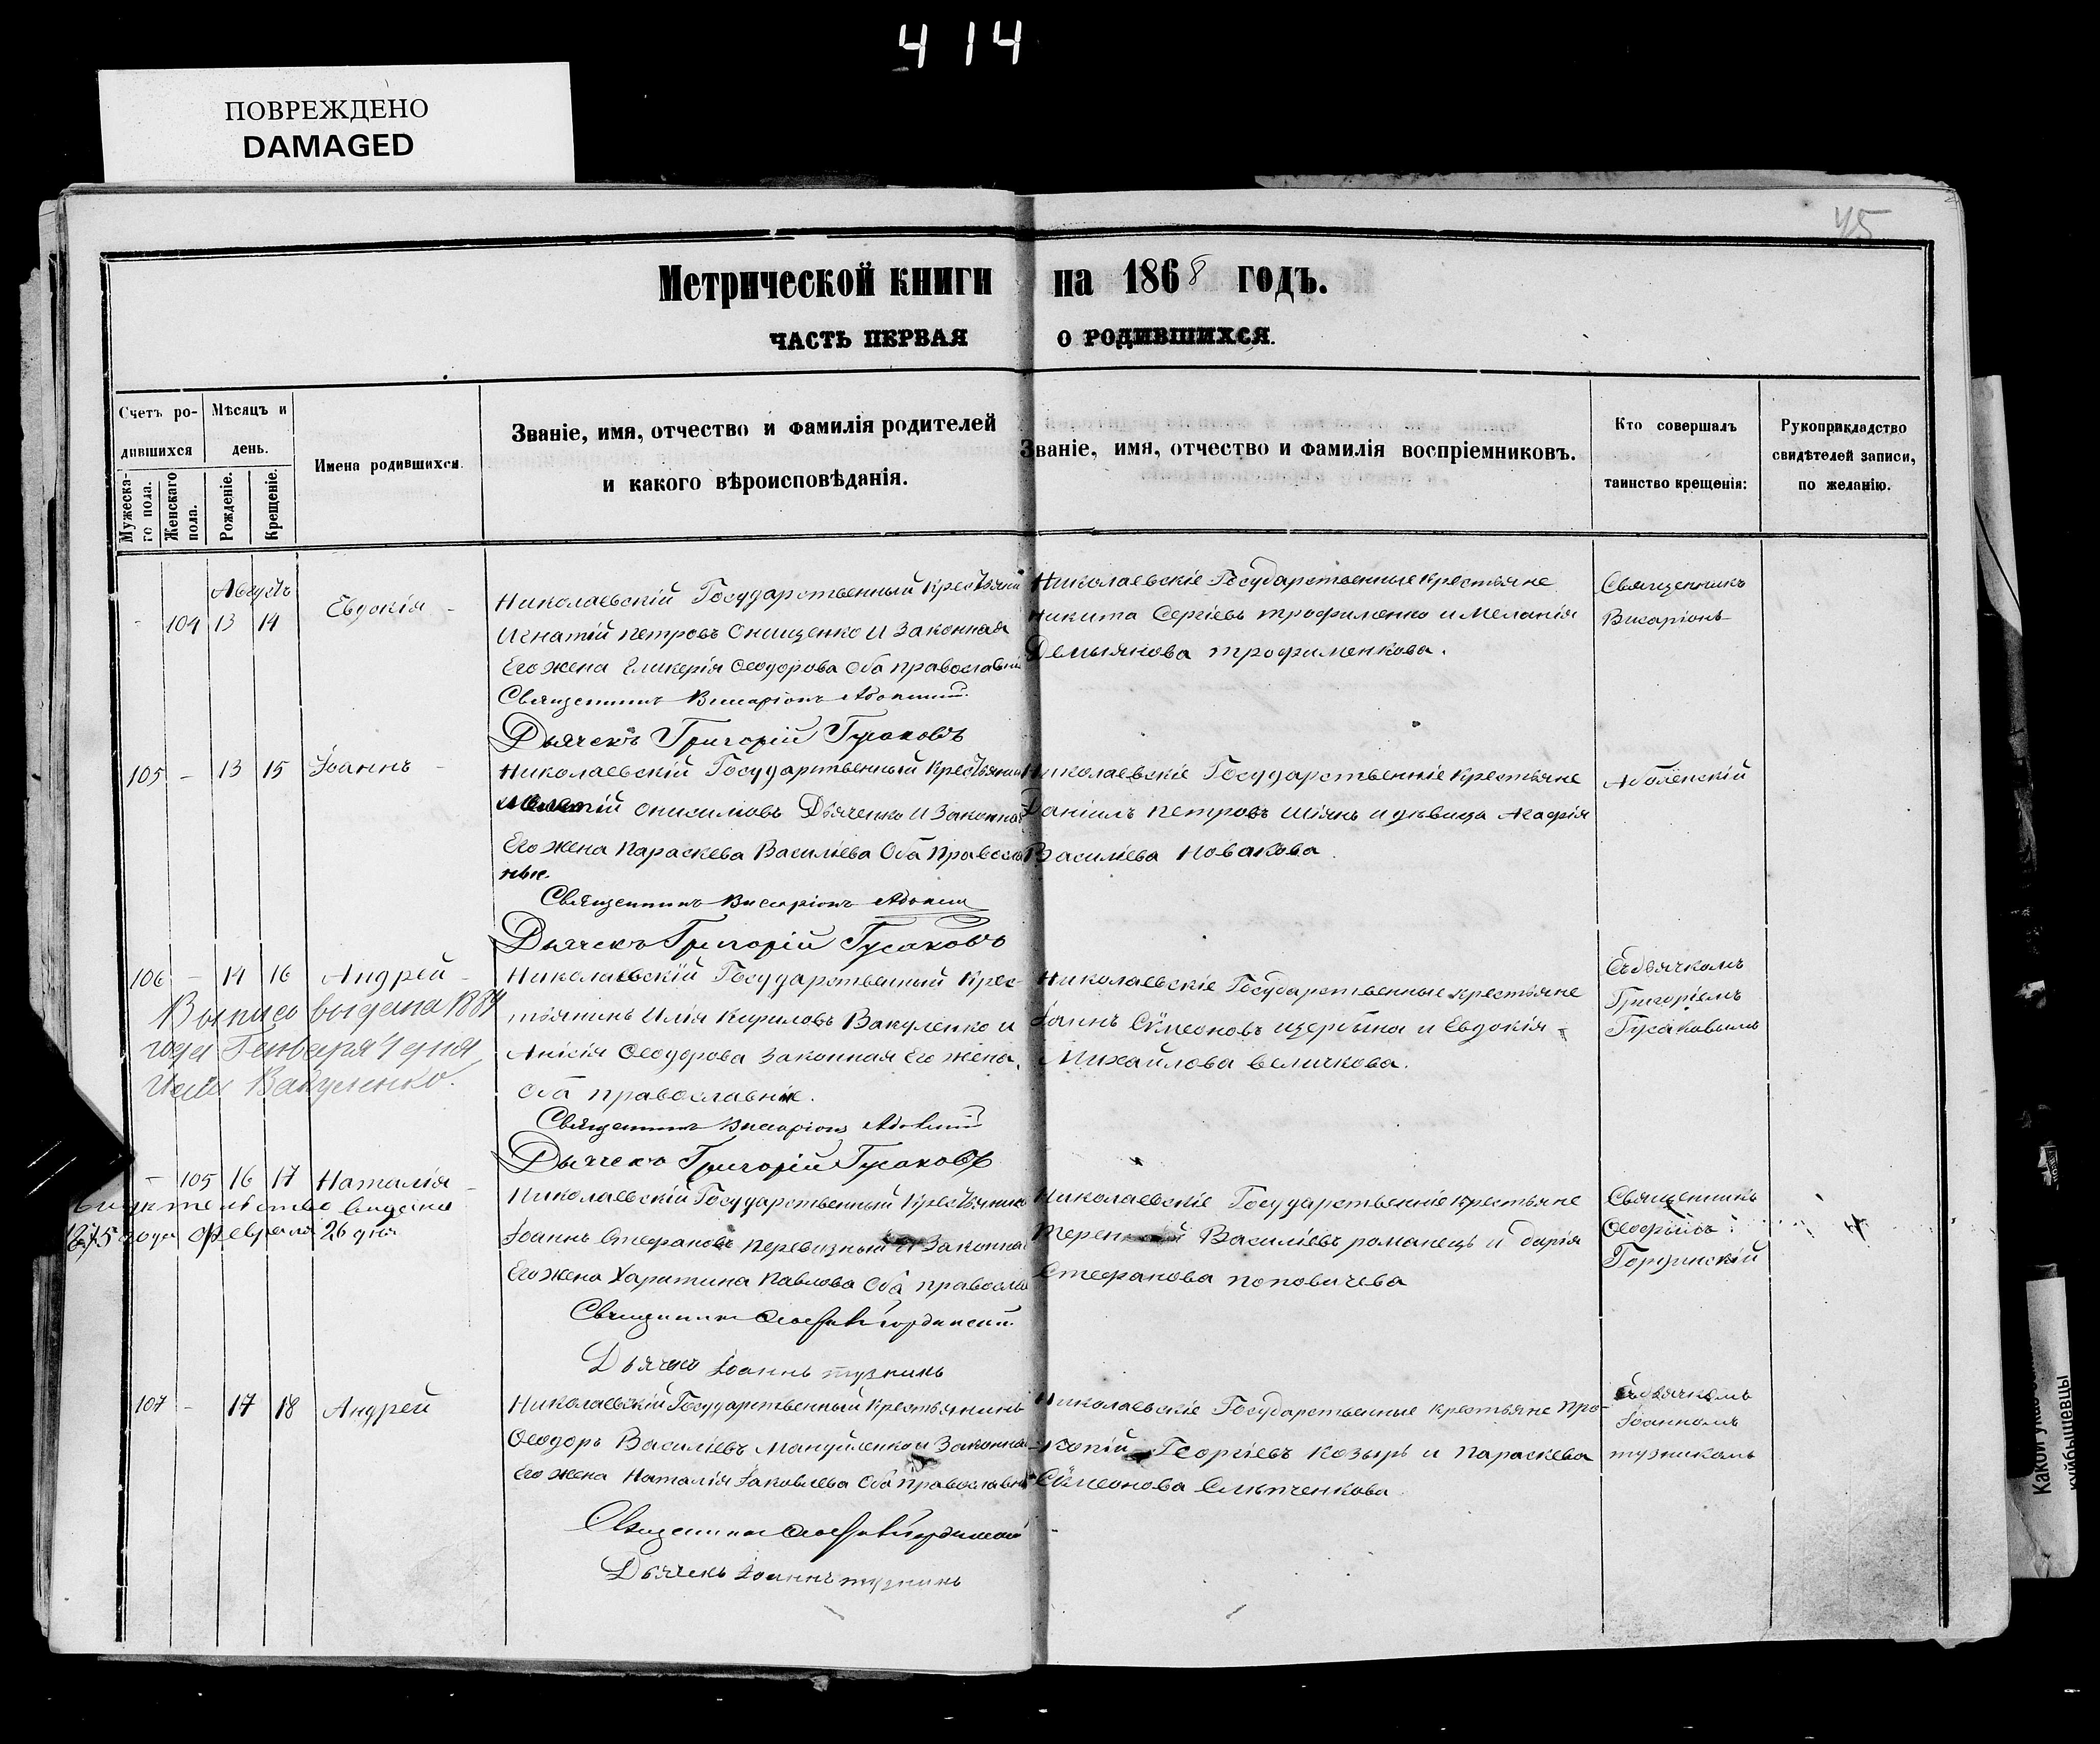 414
ПОВРЕЖДЕНО
DAMAGED
45
Метрической книги на 1868 годъ.
ЧАСТЬ ПЕРВАЯ О РОДИВШИХСЯ.
Счетъ ро-
дившихся
Мужеска-
го пола.
Женскаго
пола.
Мѣсяцъ и
день.
Рожденіе.
Крещеніе.
Имена родившихся.
Званіе, имя, отчество и фамилія родителей
и какого вѣроисповѣданія.
Званіе, имя, отчество и фамилія воспріемниковъ.
Кто совершалъ
таинство крещенія:
Рукоприкладство
свидѣтелей записи,
по желанію.
Августъ
- 104 13 14 Евдокія -
Николаевскій Государственный Крестьяни
Игнатій петровъ Онищенко И Законная
Его жена Гликерія Ѳеодорова Оба православніе
Священникъ Висаріонъ
Дьячекъ Григорій Гусаковъ
Николаевскіе Государственные крестьяне
Никита Сергіевъ трофименко и Меланія
Демьянова трофименкова.
Священникъ
Висаріонъ
105 - 13 15 Іоаннъ -
Николаевскій Государственный Крестьянинъ
онисимовъ Дьяченко И Законная
Его жена Параскева Василіева Оба Правосла
ные.
Священникъ Висаріонъ
Дьячекъ Григорій Гусаковъ
Николаевскіе Государственніе крестьяне
Даніилъ петровъ шіянъ и дѣвица Агафія
Василіева Новакова.
106 - 14 16 Андрей -
Выпись выдана 1884
года Генваря 4 дня
Иліи Вакуленко.
Николаевскій Государственный Крес-
тьянинъ Илія Кириловъ Вакуленко и
Анісія Ѳеодорова Законная Его жена,
оба православніе.
Священникъ Висаріонъ
Дьячекъ Григорій Гусаковъ
Николаевскіе Государственные крестьяне
Іоаннъ Сѵмеоновъ щербина и Евдокія
Михайлова величкова.
Съ дьячкомъ
Григоріемъ
Гусаковымъ
- 105 16 17 Наталія -
1875 года Февраля 26 дня
Николаевскій Государственный Крестьянинъ
Іоаннъ Стефановъ перевизный и Законная
Его жена Харитина Павлова Оба правосла
Священникъ
Дьячекъ Іоаннъ
Николаевскіе Государственніе крестьяне
Василіевъ романецъ и дарія
Стефанова поповичева
Священникъ
Ѳеофилъ
107 - 17 18 Андрей
Николаевскій Государственный Крестьянинъ
Ѳеодоръ Василіевъ Мануйленко и Законная
Его жена Наталія Іаковлева Оба Православніе
Священникъ
Дьячекъ Іоаннъ
Николаевскіе Государственные крестьяне Про-
копій Георгіевъ козырь и параскева
Сѵмеонова Слѣпченкова.
Съ дьячкомъ
Іоанномъ